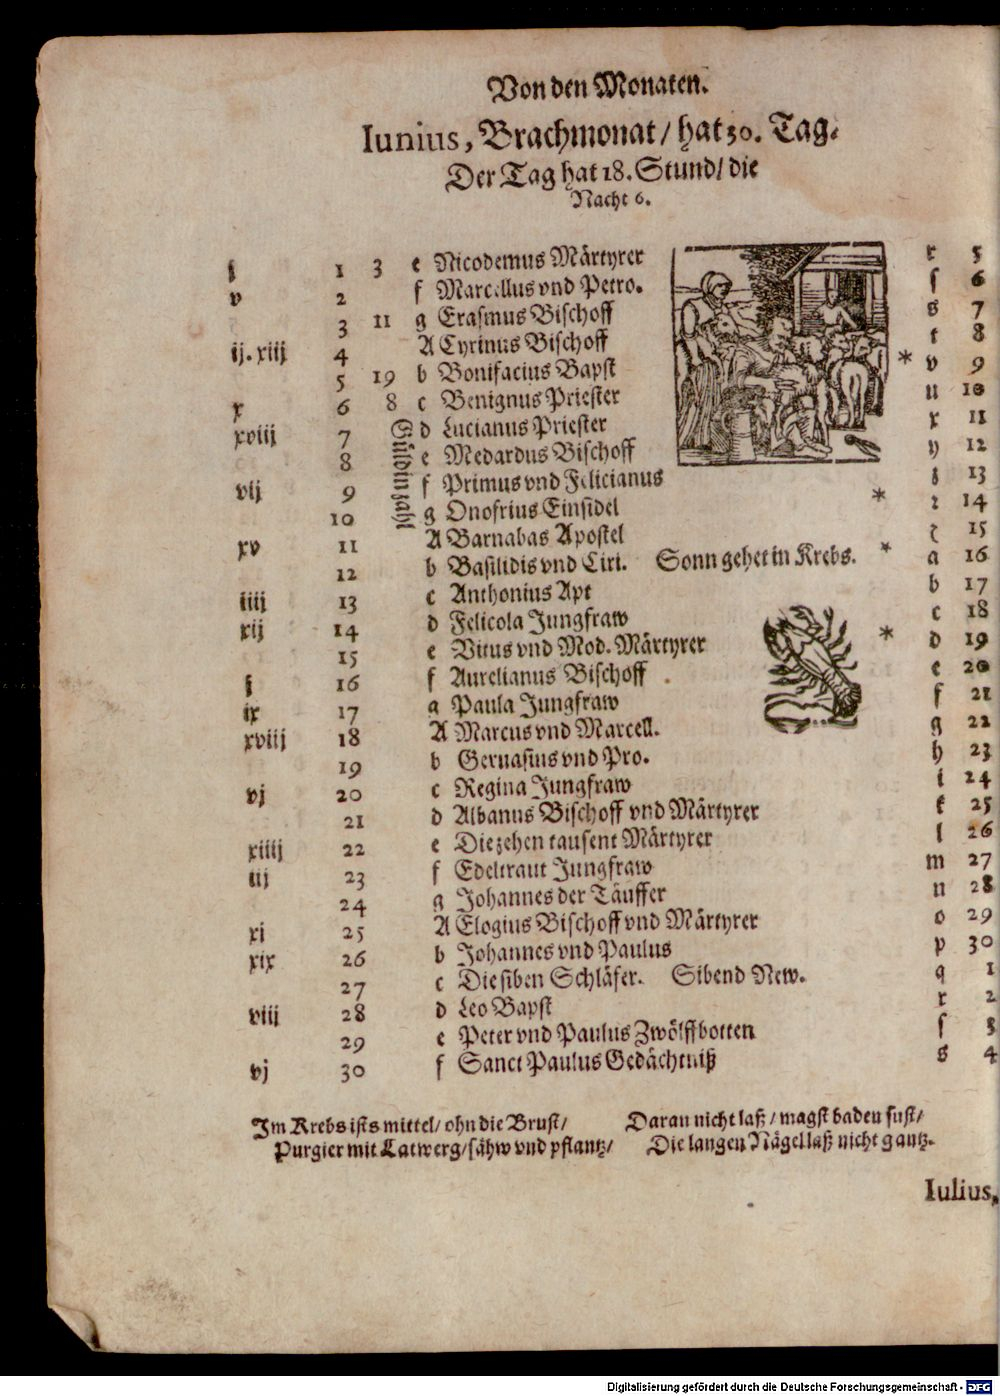 Von den Monaten.
Iunius, Brachmonat / hat 30. Tag.
Der Tag hat 18. Stund / die
Nacht 6.
j 1 3 e Nicodemus Märtyrer r 5
v 2 f Marcellus vnd Petro. ſ 6
3 11 g Eraſmus Biſchoff s 7
ij. xiij 4 A Cyrinus Biſchoff t 8
5 19 b Bonifacius Bapſt * v 9
x 6 8 c Benignus Prieſter u 10
xviij 7 d Lucianus Prieſter x 11
8 e Medardus Biſchoff y 12
vij 9 f Primus vnd Felicianus z 13
10 g Onofrius Einſidel * 14
Güldin zahl
xv 11 A Barnabas Apoſtel 15
12 b Baſilidis vnd Ciri. Sonn gehet in Krebs. * a 16
iiij 13 c Anthonius Apt b 17
xij 14 d Felicola Jungfraw c 18
15 e Vitus vnd Mod. Märtyrer * d 19
j 16 f Aurelianus Biſchoff e 20
ix 17 g Paula Jungfraw f 21
xviij 18 A Marcus vnd Marcell. g 22
19 b Geruaſius vnd Pro. h 23
vj 20 c Regina Jungfraw i 24
21 d Albanus Biſchoff vnd Märtyrer k 25
xiiij 22 e Die zehen tauſent Märtyrer l 26
iij 23 f Edeltraut Jungfraw m 27
24 g Johannes der Täuffer n 28
xi 25 A Elogius Biſchoff vnd Märtyrer o 29
xix 26 b Johannes vnd Paulus p 30
27 c Die ſiben Schläfer. Sibend New. q 1
viii 28 d Leo Bapſt r 2
29 e Peter vnd Paulus Zwölffbotten ſ 3
vj 30 f Sanct Paulus Gedächtniß s 4
Im Krebs iſts mittel / ohn die Bruſt /
Purgier mit Latwerg / ſähw vnd pflantz /
Daran nicht laß / magſt baden ſuſt /
Die langen Nägel laß nicht gantz.
Iulius,
Digitalisierung gefördert durch die Deutsche Forschungsgemeinschaft - DFG